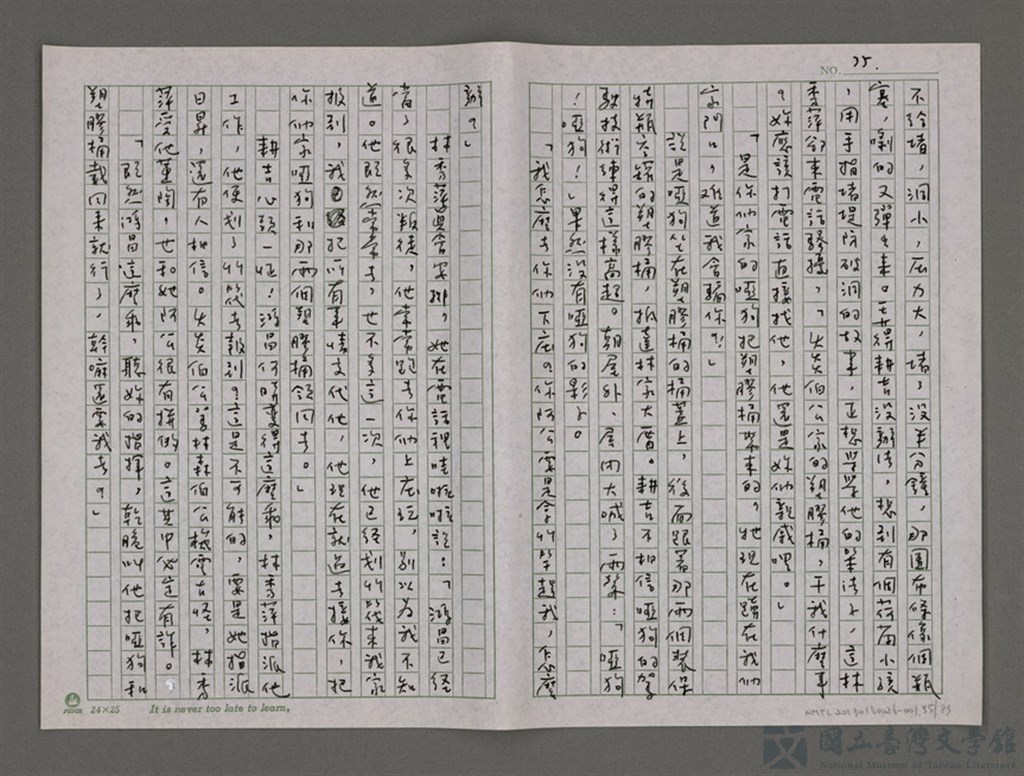 NO. 35.
不給堵,洞小,压力大,堵了沒半分鐘,那團布條像個瓶
塞,喇的又彈出來。弄得耕吉沒辦法,想到有個荷南小孩
,用手指堵堤防破洞的故事,正想學學他的辦法了,這林
秀萍卻來電話騷擾,「火炎伯公家的塑膠桶,干我什麼事
?妳應該打電話直接找他,他還是妳們親戚哩。」
「是你们家的啞狗把塑膠桶帶來的,牠現在蹲在我们
家門口,难道我會騙你?」
說是啞狗坐在塑膠桶的桶蓋上,後面跟著那兩個裝保
特瓶空罐的塑膠桶,抵達林家大厝。耕吉不相信啞狗的駕
駛技術練得這樣高超。朝屋外、屋内大喊了兩聲:「啞狗
!啞狗!」果然沒有啞狗的影子。
「我怎麼去你们下庄?你阿公要是拿竹竿趕我,怎麼
辦?」
林秀萍真會安排,她在電話裡哇啦啦說:「鴻昌已經
當了很多次叛徒,他常常跑去你们上庄玩,别以为我不知
道。他既然常常去,也不多這一次,他已经划竹筏来我家
报到,我把所有事情交代他,他現在就过去接你,把
你们家啞狗和那兩個塑膠桶領回去。」
耕吉心頭一怔!鴻昌何時变得這麼乖,林秀萍指派他
工作,他便划了竹筏去報到?這是不可能的,要是她指派
日昇,還有人相信。火炎伯公笑林森伯公梅雲古怪,林秀
萍受他薰陶,也和她阿公很有拚的。這其中必定有詐。
「既然鴻昌這麼乖,聽妳的指揮,乾脆叫他把啞狗和
塑膠桶載回来就行了,幹嘛还要我去?」
24×25 It is never too late to learn,
NMTL20130180026-001.35/89
國立臺灣文學館
National Museum of Taiwan Literature